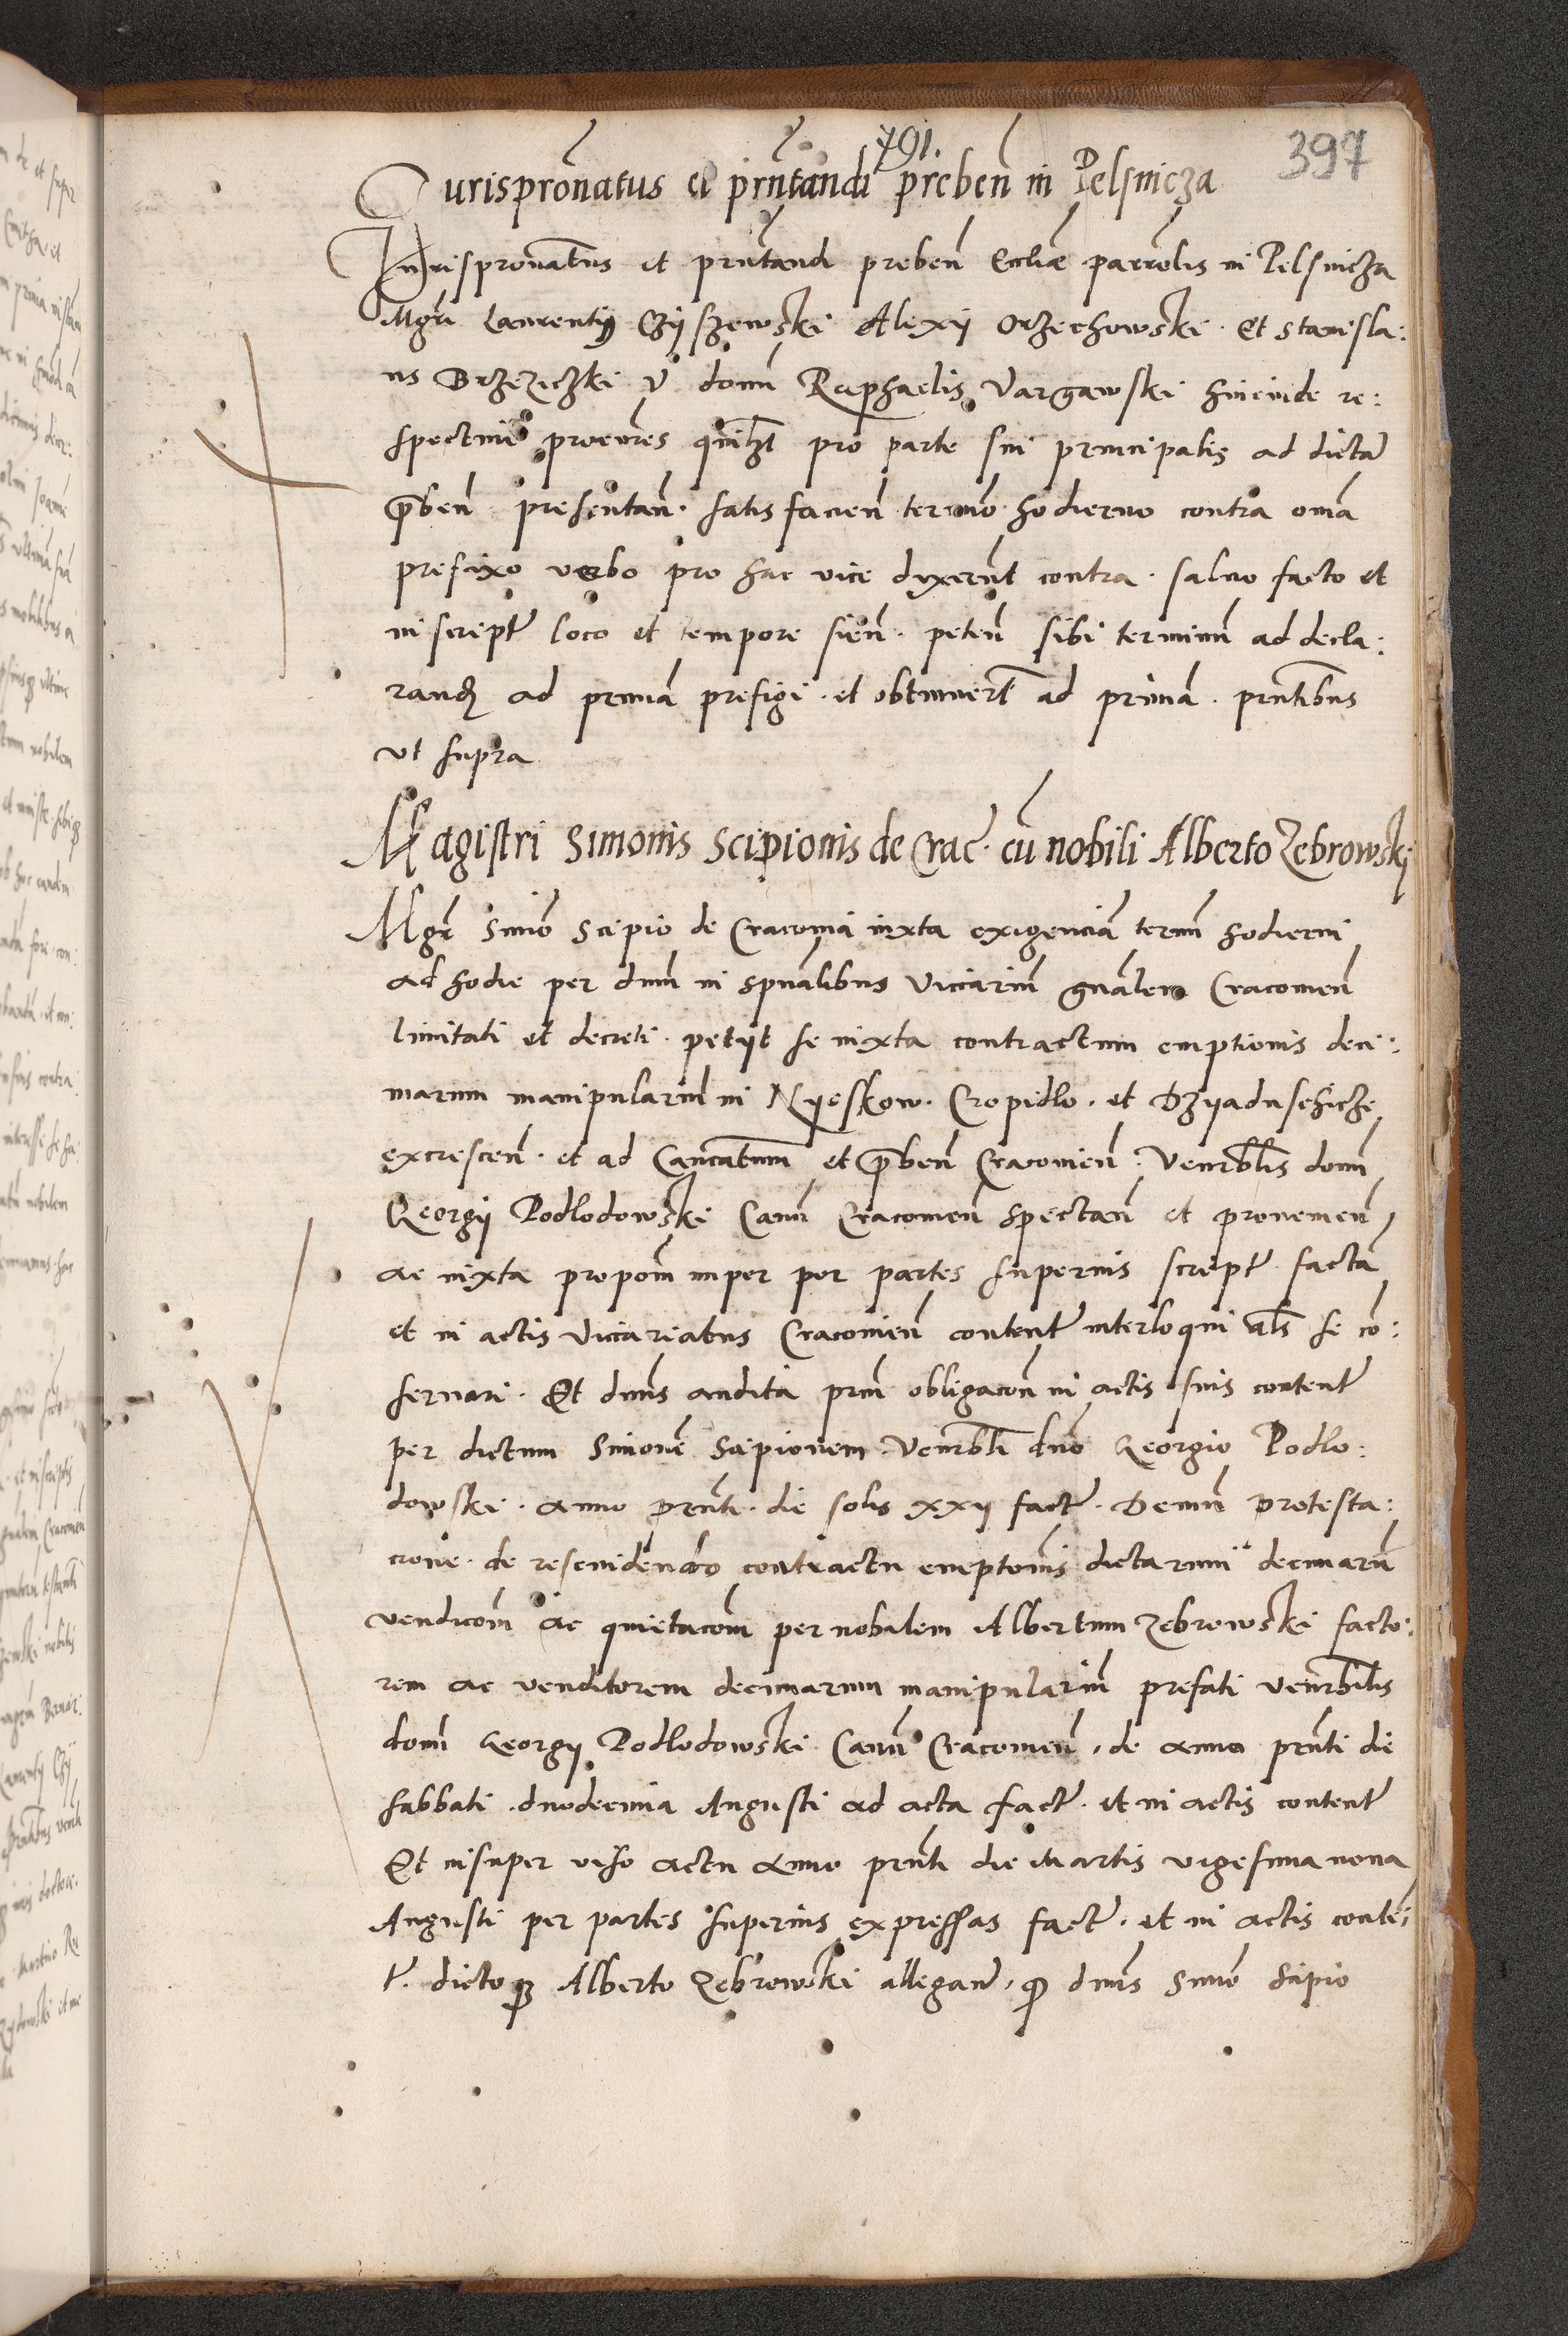 791.
397
Jurisproñatus et prñtandi preben̄ in Pelsnicza
Jurispronatus et prñtandi preben̄ Ecclīe parrolis in Pelsnicza
Mgrī Laurentij Czijszewski Alexij Orzechowski. Et Stanisla:
us Brzeziczki domī Raphaelis Vargawski hincinde re:
spectiue procures quilibet pro parte sui principalis ad dictā
p̄ben̄ presentan̄. satisfacien̄ termio hodierno contra om̄ia
prefixo verbo pro hac vice dixerūt contra. saluo facto et
in scriptꝭ loco et tempore sien̄. peten̄ sibi terminū ad decla:
rand ad primā prefigi. et obtinuerūt ad primā. prñtibus
vt supra
Magistri Simonis Scipionis de Crac. cū nobili Alberto Zebrowski
Mgr Simō Scipio de Cracouia iuxta exigenciā termī hodierni
ad hodie per dnm̄ in spūalibus Vicariū gnālem Cracouien̄
limitati et decreti. petijt se iuxta contractum emptionis deci:
marum manipulariū in Nyeskow. Cropidlo. et Dzyadusehicze
excrescen̄. et ad Canᶜatum et p̄ben̄ Cracouien̄. Venrblīs domī
Georgij Podlodowski Canᶜi Cracouien̄ spectan̄ et prouenien̄
ac iuxta propoñ nuper per partes superius scriptꝭ factā
et in actis Vicariatus Cracouien̄ contentꝭ interloqui als̄ se cō:
seruari. Et dnus audita prim̄ obligacoñ in actis suis contentꝭ
per dictum Simonē Scipionem. Venrbli dn̄o Georgio Podlo:
dowski. anno prñti. die solis xxij factꝭ. Demū protesta:
cione. de rescindendo contractu emptonis dictarum decimarū
vendicoñ ac quietacoñ per nobilem Albertum Zebrowski facto:
rem ac venditorem decimarum manipulariū prefati venrbilis
domī Georgij Podlodowski Canᶜi Cracouien̄. de anno prñti die
sabbati. duodecima Augusti ad acta factꝭ. et in actis contentꝭ
Et insuper viso actu anno prñti die Martis vigesima nona
Augusti per partes superius expressas factꝭ. et in actis conten:
tꝭ. dictoqꝫ Alberto Zebrowski allegan̄. ꝙ dnus Simō Scipio